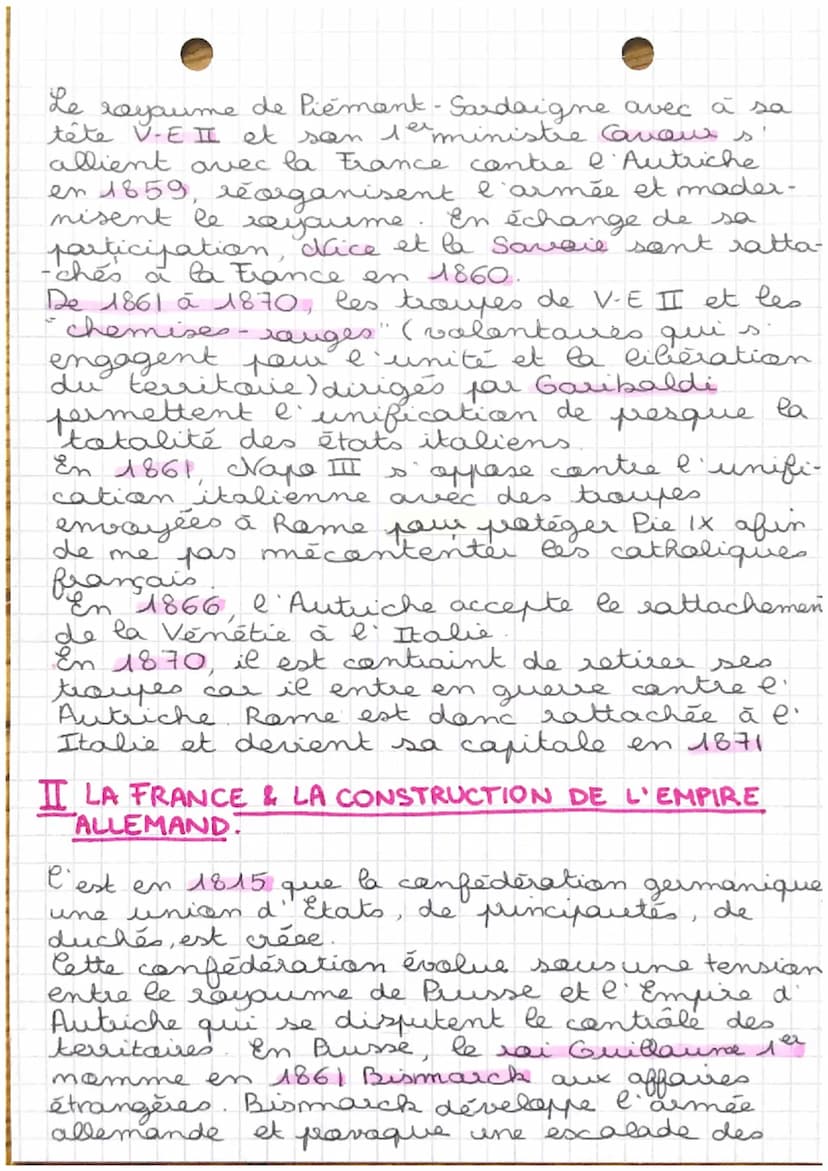 Le royaume de Piémont-Sardaigne avec à sa
tête V-E II et son 1er ministre Cavour s'
allient avec la France contre l'Autriche
en 1859, réorganisent l'armée et moder-
nisent le royaume. En échange de sa
participation, Nice et la Savoie sont ratta-
-chés à la France en 1860.
De 1861 à 1870, les troupes de V-E II et les
"chemises-rouges" (volontaires qui s'
engagent pour l'unité et la libération
du territoire) dirigés par Garibaldi
permettent l'unification de presque la
totalité des états italiens.
En 1861, Napo III s'oppose contre l'unifi-
cation italienne avec des troupes
envoyées à Rome pour protéger Pie IX afin
de me pas mécontenter les catholiques
français.
En 1866, l'Autriche accepte le rattachemen
de la Vénétie à l'Italie.
En 1870, il est contraint de retirer ses
troupes car il entre en guerre contre l'
Autriche. Rome est donc rattachée à l'
Italie et devient sa capitale en 1871
II LA FRANCE & LA CONSTRUCTION DE L'EMPIRE
ALLEMAND.
C'est en 1815 que la confédération germanique
une union d'États, de principautés, de
duchés, est créée.
Cette confédération évolue sous une tension
entre le royaume de Prusse et l'Empire d'
Autriche qui se disputent le contrôle des
territoires. En Prusse, le roi Guillaume 1er
nomme en 1861 Bismarck aux affaires
étrangères. Bismarck développe l'armée
allemande et provoque une escalade des